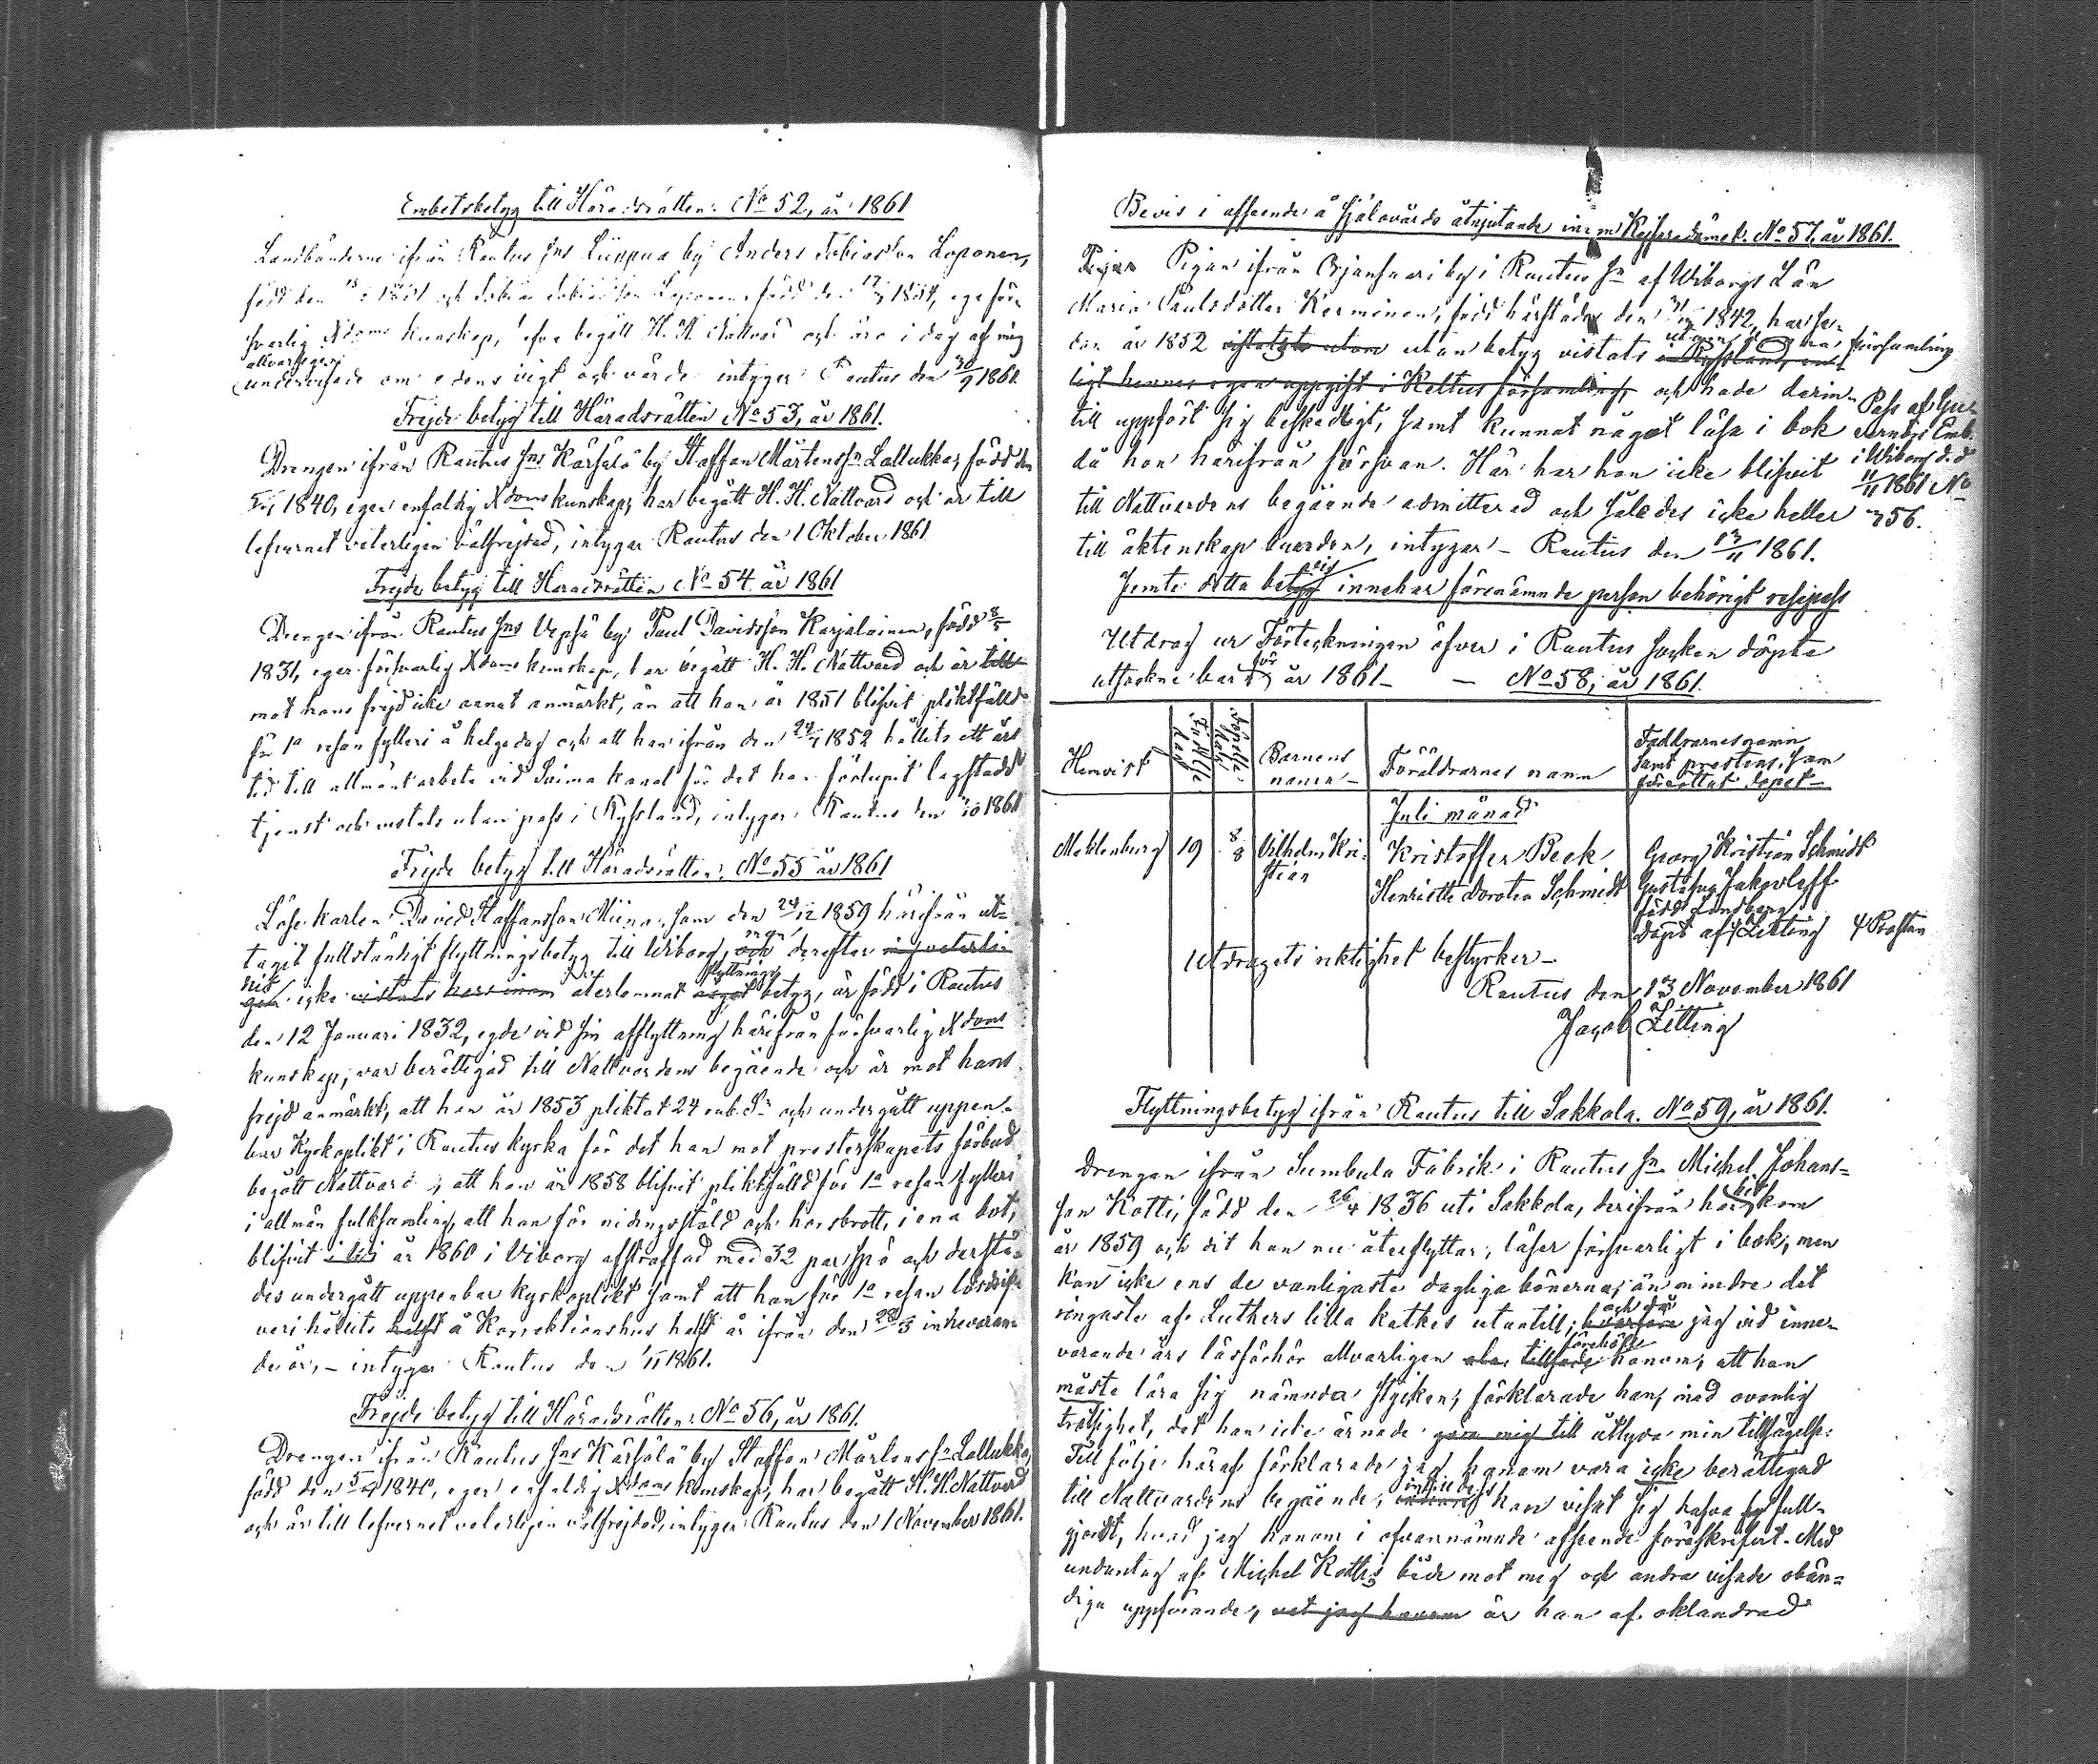 Embetsbetyg till Häradsrätten. No 52, år 1861
Landbönderne ifrån Rautus Sns Liippua by Anders Tobiasson Loponen,
född den 1851 och Tobias Tobiasson Loponen född den 1854, ega för-
svarlig Xdoms kunskap, hafva begått H. H. Nattvard och äro i dag af mig
allvarligen
undervisade om edens vigt och värde intygar Rautus den 30/9 1861.
Frejde betyg till Häradsrätten No 53, år 1861.
Drengen ifrån Rautus Sns Kärsälä by Staffan Mårtenssn Lallukka, född den
1840, eger enfaldig Xdoms kunskap, har begått H. H. Nattvard och är till
lefvernet veterligen välfrejdad, intygar Rautus den 1 Oktober 1861.
Frejde betyg till Häradsrätten No 54. år 1861
Drengen ifrån Rautus Sns Vepsä by Paul Davidsson Karjalainen, född 8/5
1831, eger försvarlig Xdoms kunskap, har begått H. H. Nattvard och är till
mot hans frejd icke annat anmärkt, än att han år 1851 blifvit pliktfälld
för 1a resan fylleri å helgedag och att han ifrån den 24/4 1852 hållits ett års
tid till allmänt arbete vid Saima kanal för det han förlupit lagstadd
tjenst och vistats utan pass i Ryssland, intygar Rautus den 1/10 1861
Frejde betyg till Häradsrätten. No 55 år 1861
Löse karlen David Staffansson Miina, som den 24/12 1859 härifrån ut-
tagit fullständigt flyttningsbetyg till Wiborg, och derefter ej veterli-
gen icke vistats härinom återlemnat något flyttnings betyg, är född i Rautus
den 12 Januari 1832, egde vid sin afflyttning härifrån försvarlig Xdoms
kunskap, var berättigad till Nattvardens begående och är mot hans
frejd anmärkt, att han år 1853 pliktat 24 rub. Sr och undergått uppen-
bar Kyrkoplikt i Rautus kyrka för det han mot presterskapets förbud
begått Nattvard, att han år 1858 blifvit pliktfälld för 1a resan fylleri
i allmän folksamling, att han för nidingsstöld och horsbrott, i ena bot,
blifvit år 1860 i Viborg afstraffad med 32 par spö och derstä-
des undergått uppenbar kyrkoplikt samt att han för 1a resan lösdrif-
veri hållits å Korrektionshus halft år ifrån den 28/3 innevaran-
de år, - intygar Rautus den 1/11 1861.
Frejde betyg till Häradsrätten. No 56, år 1861.
Drengen ifrån Rautus Sns Kärsälä by Staffan Mårtenssn Lallukka,
född den 1840, eger enfaldig Xdoms kunskap, har begått H. H. Nattvard
och är till lefvernet veterligen välfrejdad, intygar Rautus den 1 November 1861.
Bevis i afseende å själavårds åtnjutande inom Kejsaredömet. No 57. år 1861.
Pigan ifrån Orjansaari by i Rautus Sn af Wiborgs Län
Maria Paulsdotter Kerminen, född härstädes den 1842, har se-
dan år 1852 utan betyg vistats i Ryssland, en-
församling
ligt hennes egen uppgift i Keltus församling, och hade derin-
till uppfört sig beskedligt, samt kunnat något läsa i bok
då hon härifrån försvan. Här har hon icke blifvit
till Nattvardens begående admitterad och således icke heller
till äktenskap buorden, intygar - Rautus den 13/11 1861.
Pass af Gu-
vernörs Emb.
i Wiborg d. d.
11/11 1861 No
756.
Jemte detta betyg innehar förenämnde person behörigt respass
Utdrag ur Förteckningen öfver i Rautus socken döpta
utsockne barn för år 1861 - - No 58, år 1861.
Hemvist
Födelse dag
Döpelse dag
Barnens
namn -
Föräldrarnes namn
Faddrarnes namn
samt prestens, som
förrättat dopet -
Juli månad
Meklenburg 19 8/8 Vilhelm Kri-
stian
Kristoffer Beck
Henriette Dorotea Schmidt
Georg Kristian Schmidt
Gustafva Jakovleff
född Lundberg
Döpt af Zitting
Utdragets riktighet bestyrker -
Rautus den 13 November 1861
Jacob Zitting
Flyttningsbetyg ifrån Rautus till Sakkola. No 59, år 1861.
Drengen ifrån Sumbula Fabrik i Rautus Sn Michel Johans-
son Kotti, född den 26/4 1836 uti Sakkola, derifrån han hit kom
år 1859 och dit han nu återflyttar, läser försvarligt i bok, men
kan icke ens de vanligaste dagliga bönerna, än mindre det
ringaste af Luthers lilla katkes utantill; och då jag vid inne-
förehöll
varande års läsförhör allvarligen honom, att han
måste lära sig nämnda stycken, förklarade han, med ovanlig
trotsighet, det han icke ärnade göra mig till åtlyda min tillsägelse.
Till följe häraf förklarade jag honom vara icke berättigad
till Nattvardens begående, intilldess han visat sig hafva full-
gjordt, hvad jag honom i ofvannämnde afseende föreskrifvit. Med
undantag af Michel Kottis både mot mig och andra visade obän-
diga uppförande, vet jag honom är han af oklandrad